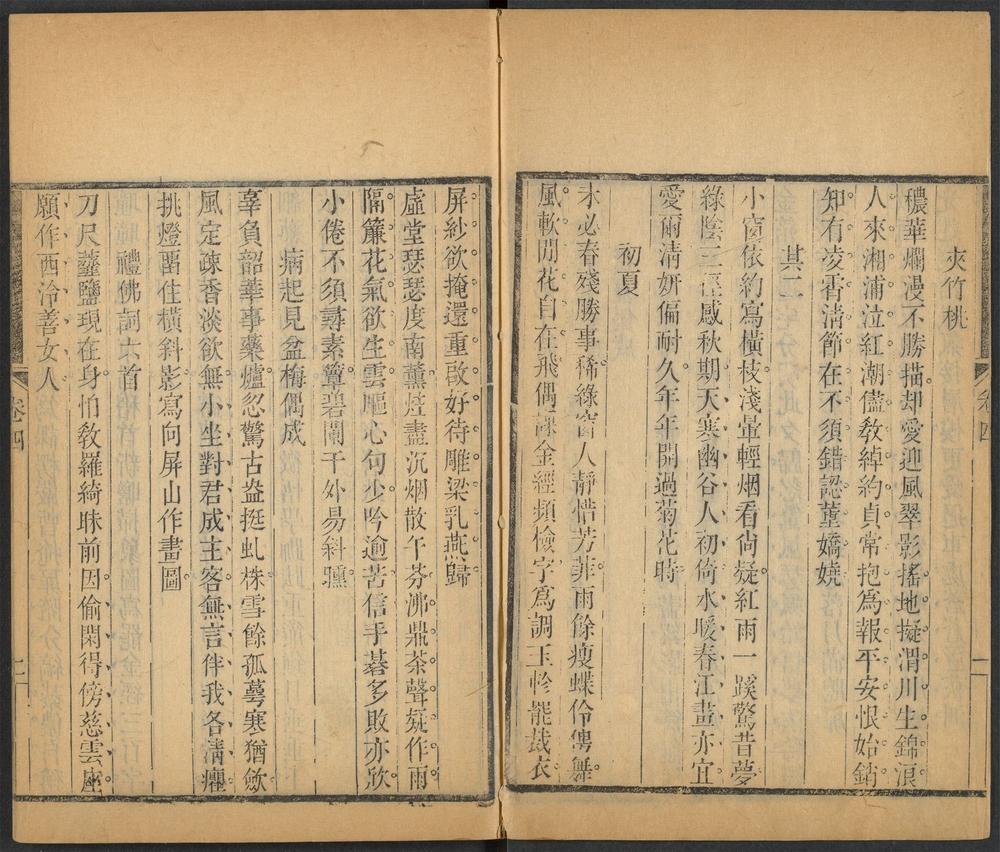 夾竹桃
穠華爛漫不勝描却愛迎風翠影搖地擬渭川生錦浪
人來湘浦泣紅潮儘教綽約貞常抱爲報平安恨始銷
知有凌霄淸節在不須錯認菫嬌嬈
其二
小窗依約寫橫枝淺暈輕烟看尙疑紅雨一蹊驚昔夢
綠陰三徑感秋期天寒幽谷人初倚水暖春江畫亦宜
愛爾淸妍偏耐久年年開過菊花時
初夏
未必春殘勝事稀綠窗人靜惜芳菲雨餘瘦蝶伶俜舞
風軟閒花自在飛偶課金經頻檢字爲調玉軫罷裁衣
卷四
屏紗欲掩還重啟好待雕梁乳燕歸
虛堂瑟瑟度南薰燈盡沉烟散午芬沸鼎茶聲疑作雨
隔簾花氣欲生雲嘔心句少吟逾苦信手碁多敗亦欣
小倦不須尋素簟碧闌干外易斜曛
病起見盆梅偶成
辜負韶華事藥爐忽驚古盎挺虬株雪餘孤萼寒猶斂
風定疎香淡欲無小坐對君成主客無言伴我各淸癯
挑燈畱住橫斜影寫向屏山作畫圖
禮佛詞六首
刀尺虀鹽現在身怕教羅綺昧前因偷閑得傍慈雲座
願作西泠善女人
卷四